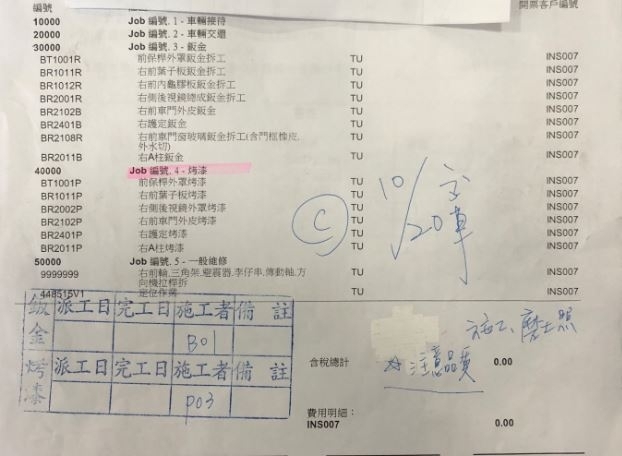 編號 開票客戶編號
10000 Job 編號. 1 - 車輛接待
20000 Job 編號. 2 - 車輛交還
30000 Job 編號. 3 - 鈑金
BT1001R 前保桿外罩鈑金拆工 TU INS007
BR1011R 右前葉子板鈑金拆工 TU INS007
BR1012R 右前內龜膠板鈑金拆工 TU INS007
BR2001R 右側後視鏡總成鈑金拆工 TU INS007
BR2102B 右前車門外皮鈑金 TU INS007
BR2401B 右護定鈑金 TU INS007
BR2108R 右前車門窗玻璃鈑金拆工(含門框橡皮. TU INS007
外水切)
BR2011B 右A柱鈑金 TU INS007
40000 Job 編號. 4 - 烤漆
BT1001P 前保桿外罩烤漆 TU INS007
BR1011P 右前葉子板烤漆 TU INS007
BR2002P 右側後視鏡外罩烤漆 TU INS007
BR2102P 右前車門外皮烤漆 TU INS007
BR2401P 右護定烤漆 TU INS007
BR2011P 右A柱烤漆 TU INS007
C
10/20
車
50000 Job 編號. 5 - 一般維修
9999999 右前輪,三角架,避震器,李仔串,傳動軸,方 TU INS007
向機拉桿拆
448515V1 定位作業 TU INS007
鈑金 派工日 完工日 施工者 備註
B01
烤漆 派工日 完工日 施工者 備註
P03
含稅總計 0.00
☆注意品質
費用明細：
INS007 0.00